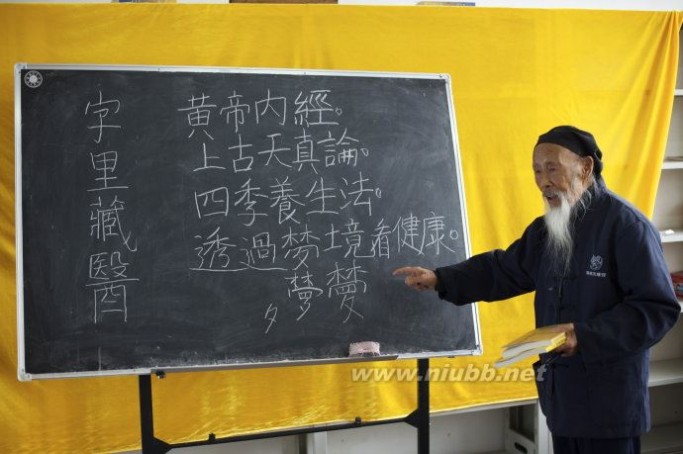 字里藏醫
黃帝內經。
上古天真論。
四季養生法。
透過梦境看健康。
夢
夕
www.niubb.net